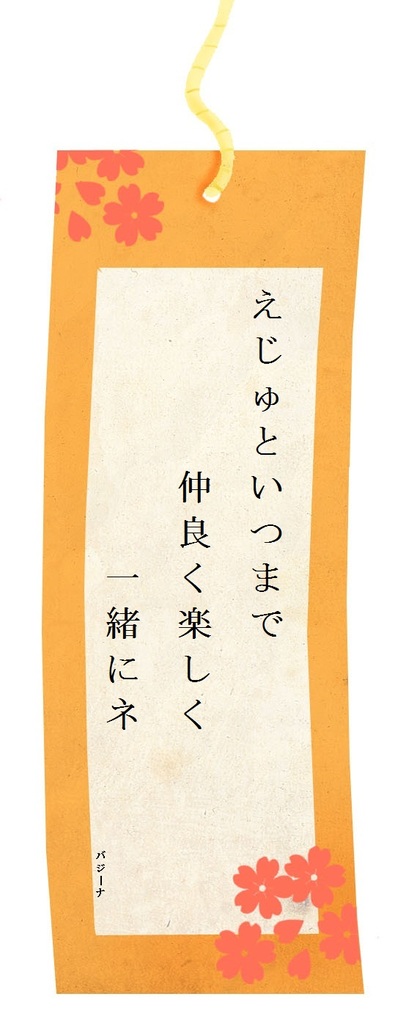 えじゅといつまで
仲良く楽しく
一緒にネ
バジーナ